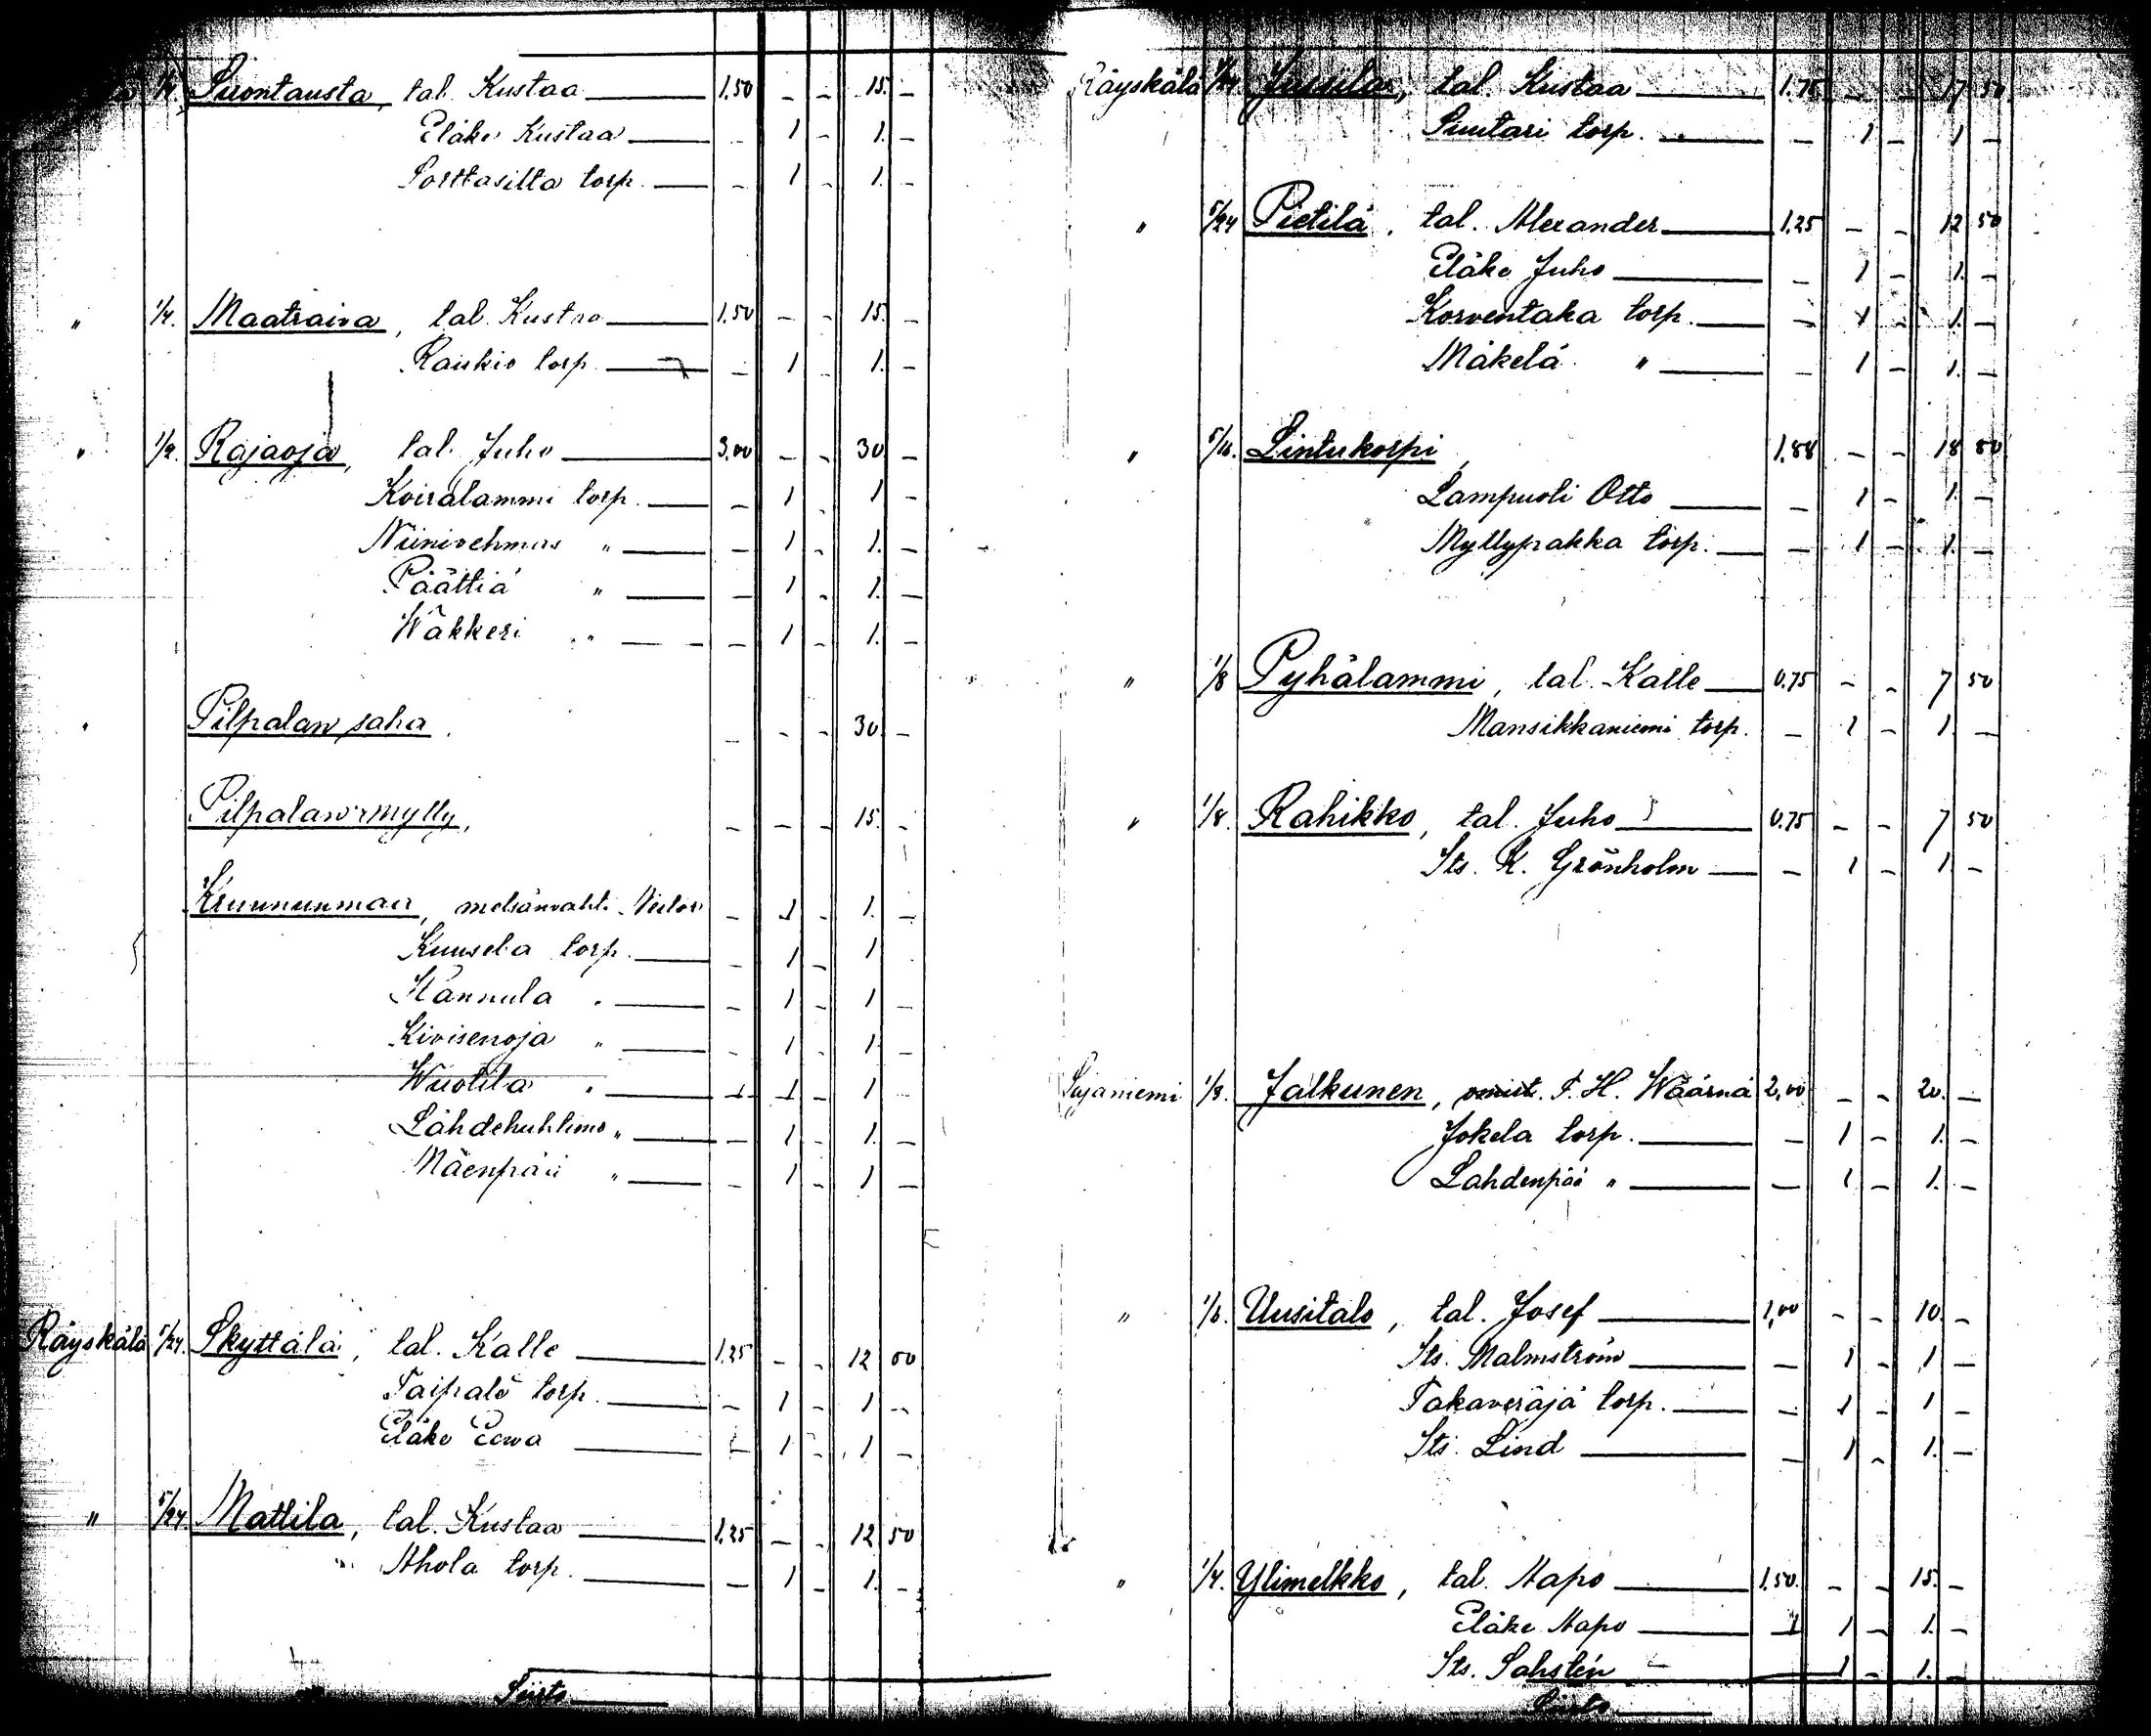 1/4. Suontausta, tal. Kustaa 1.50 - - 15. -
Eläke Kustaa - 1 - 1. -
Porttasilta torp. - 1 - 1. -
" 1/4. Maatraiva, tal. Kustaa 1.50 - - 15. -
Raukio torp - 1 - 1. -
" 1/2. Rajaoja, tal. Juho 3,00 - - 30 -
Koiralammi torp. - 1 - 1 -
Niinivehmas " - 1 - 1. -
Päättiä " - 1 - 1. -
Wäkkeri " - 1 - 1. -
" Pilpalan saha. - - - 30. -
Pilpalan mylly, - - - 15. -
Kruununmaa, metsänvahti - 1 - 1. -
Kuusela torp. - 1 - 1 -
Hannula " - 1 - 1 -
Kivisenoja " - 1 - 1 -
Wuotila " - 1 - 1 -
Lähdehuhtimo " - 1 - 1. -
Mäenpää " - 1 - 1 -
Räyskälä 5/24. Skyttälä, tal. Kalle 1.25 - - 12 50
Taipale torp. - 1 - 1 -
Eläke Eewa - 1 - 1 -
" 5/24 Mattila, tal. Kustaa 1.25 - - 12 50
Ahola torp. - 1 - 1. -
Siirto
Räyskälä 7/24 Jussila, tal. Kustaa 1.75 - - 17 50
Suutari torp. - 1 - 1 -
" 5/24 Pietilä, tal. Alexander 1.25 - - 12 50
Eläke Juho - 1 - 1. -
Korventaka torp. - 1 - 1. -
Mäkelä " - 1 - 1. -
" 5/16. Lintukorpi, 1.88 - - 18 80
Lampuoli Otto - 1 - 1. -
Myllyprakka torp. - 1 - 1. -
" 1/8 Pyhälammi, tal. Kalle 0.75 - - 7 50
Mansikkaniemi torp. - 1 - 1. -
" 1/8. Rahikko, tal. Juho 0.75 - - 7 50
Its. K. Grönholm - 1 - 1. -
Sajaniemi 1/3. Jalkunen, omist. F. H. Wäärnä 2,00 - - 20. -
Jokela torp. - 1 - 1. -
Lahdenpää " - 1 - 1. -
" 1/6. Uusitalo, tal. Josef 1,00 - - 10. -
Its. Malmström - 1 - 1 -
Takaveräjä torp. - 1 - 1 -
Its. Lind - 1 - 1. -
" 1/4. Ylimelkko, tal. Aapo 1.50. - - 15. -
Eläke Aapo 1 - 1. -
Its. Sahstén 1 - 1. -
Siirto